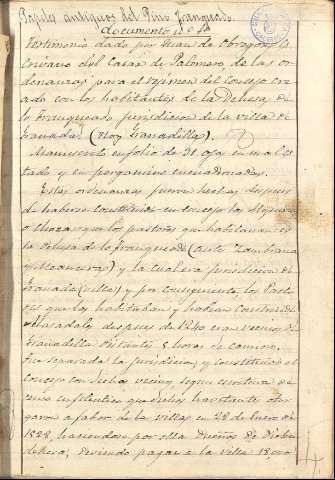 Papeles antiguos del Pino Franqueado.
documento nº 1º
Testimonio dado por Juan de Obregon
escribano del Casar de Palomero de las or-
denanzas para el régimen del Concejo cre-
ado con los habitantes de la Dehesa de
lo Franqueado jurisdiccion de la villa de
Granada (hoy Granadilla).
Manuscrito en folio de 31 ojas en mal es-
tado y en pergamino encuadernado.
Estas ordenanzas fueron hechas despues
de haberse constituido en concejo las Alquerias
o chozas que los pastores que habitaban en
la dehesa de lo Franqueado
y la cual era jurisdiccion de
Granada (villa) y por consiguiente los Pasto-
res que las habitaban y habian construido
despues de eran vecinos de
Granadilla distantes 8 horas de camino.
Fue separada la jurisdiccion, y constituido el
concejo con dichos vecinos segun escritura de
censo enfiteutico que dichos habitantes otor-
garon a fabor de la villa en 28 de Enero de
haciendose por ella dueños de dicha
dehesa, deviendo pagar a la villa 18,000